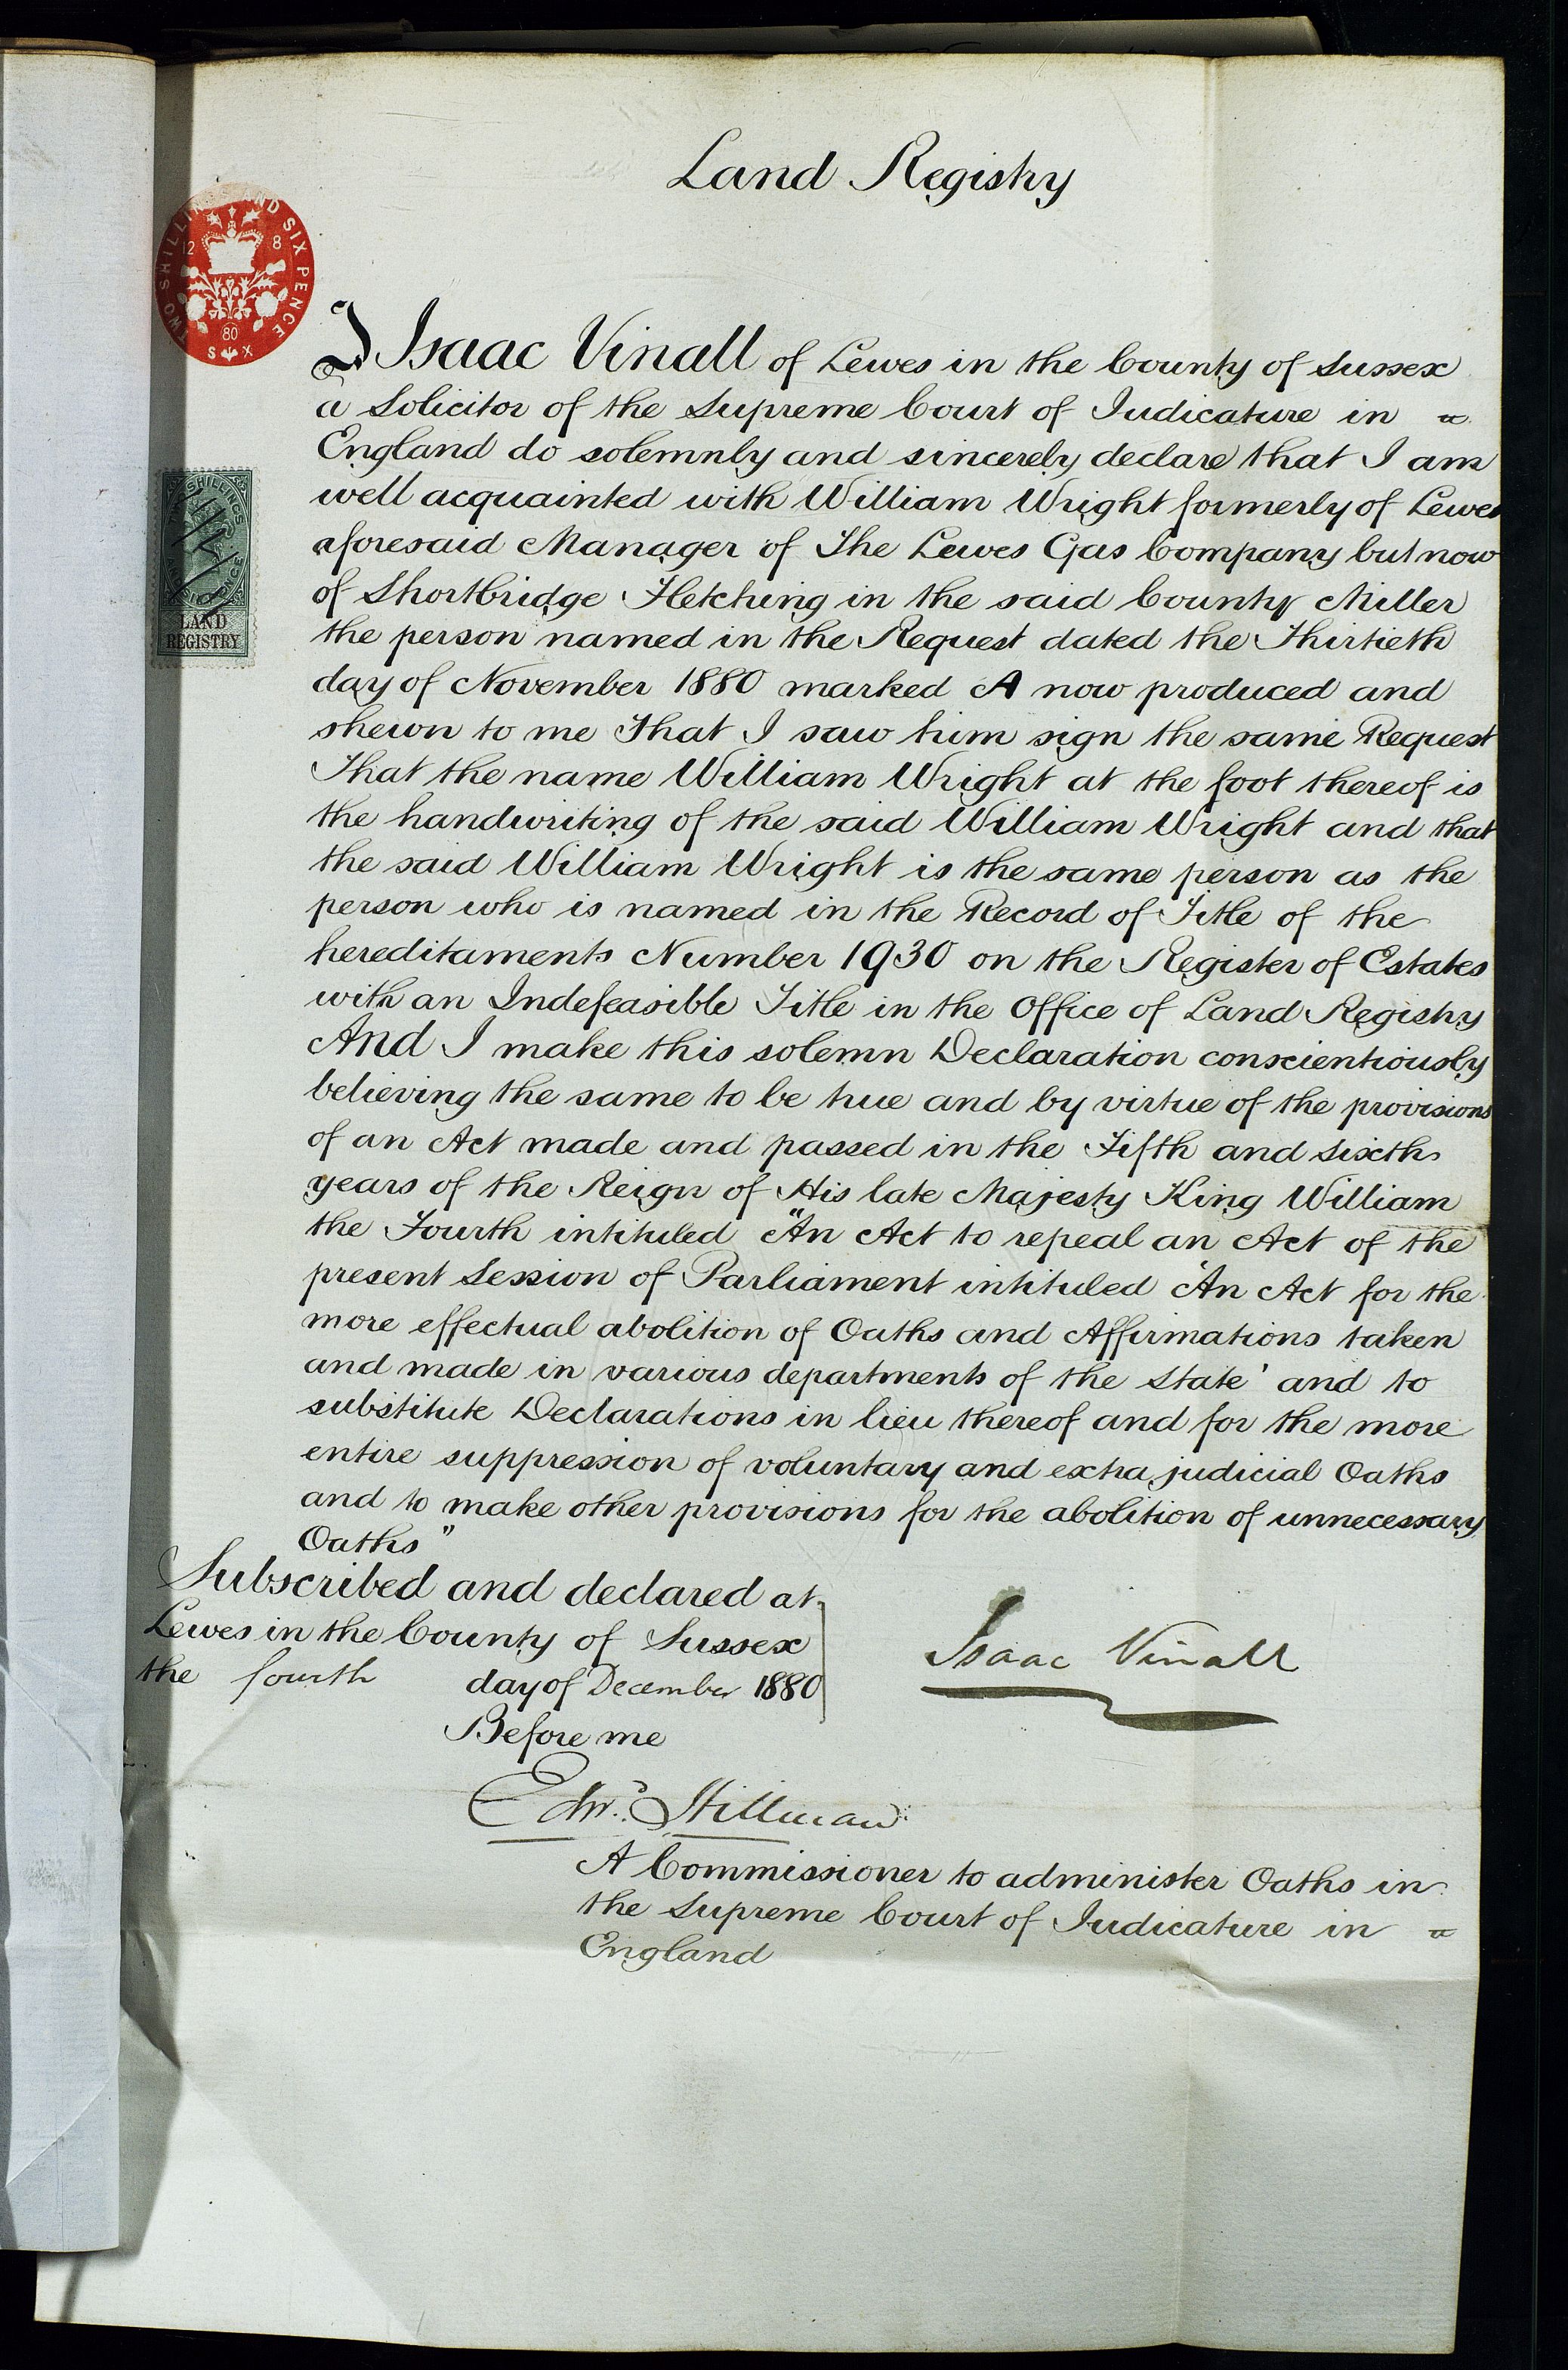 Land Registry
TWO SHILLINGS AND SIX PENCE
12 8
80
S X
I Isaac Vinall of Lewes in the County of Sussex
a Solicitor of the Supreme Court of Judicature in
England do solemnly and sincerely declare that I am
well acquainted with William Wright formerly of Lewes
aforesaid Manager of The Lewes Gas Company but now
of Shortbridge Fletching in the said County Miller
the person named in the Request dated the Thirtieth
day of November 1880 marked A now produced and
shewn to me That I saw him sign the same Request
That the name William Wright at the foot thereof is
the handwriting of the said William Wright and that
the said William Wright is the same person as the
person who is named in the Record of Title of the
hereditaments Number 1930 on the Register of Estates
with an Indefeasible Title in the Office of Land Registry
And I make this solemn Declaration conscientiously
believing the same to be true and by virtue of the provisions
of an Act made and passed in the Fifth and Sixth
years of the Reign of His late Majesty King William
the Fourth intituled "An Act to repeal an Act of the
present Session of Parliament intituled 'An Act for the
more effectual abolition of Oaths and Affirmations taken
and made in various departments of the State' and to
substitute Declarations in lieu thereof and for the more
entire suppression of voluntary and extra judicial Oaths
and to make other provisions for the abolition of unnecessary
Oaths"
SHILLINGS
SIXPENCE
LAND
REGISTRY
Subscribed and declared at
Lewes in the County of Sussex
the fourth day of December 1880
Before me
Isaac Vinall
Edwd. Hillman
A Commissioner to administer Oaths in
the Supreme Court of Judicature in
England